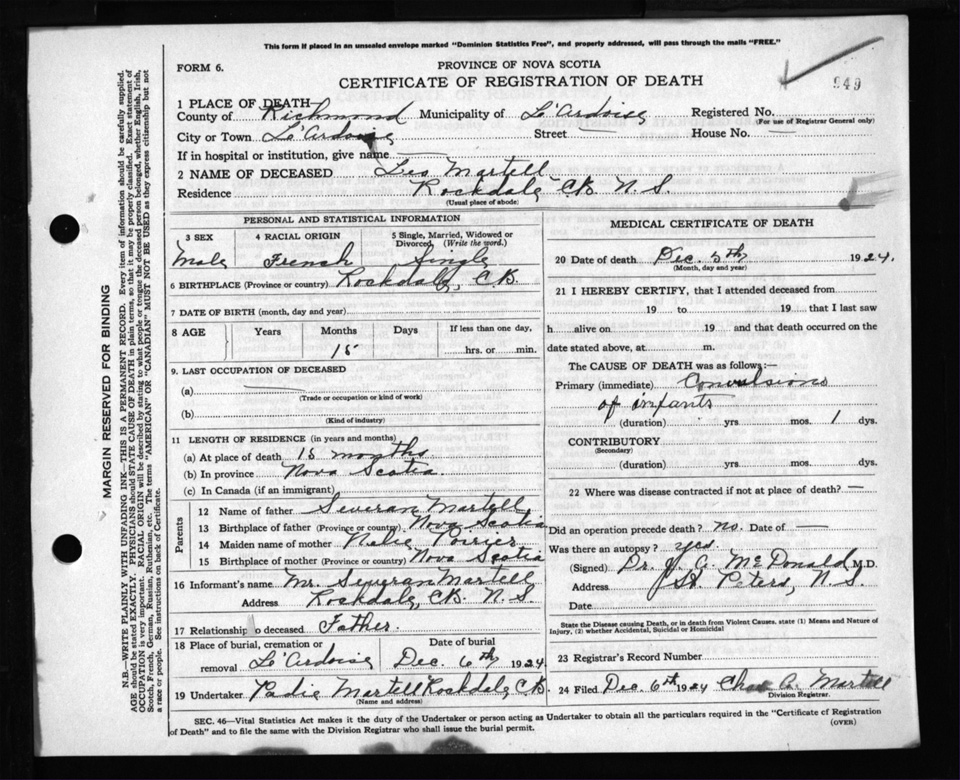 This form if placed in an unsealed envelope marked "Dominion Statistics Free", and properly addressed, will pass through the mails "FREE."
FORM 6.
PROVINCE OF NOVA SCOTIA
CERTIFICATE OF REGISTRATION OF DEATH
949
1 PLACE OF DEATH
County of Richmond Municipality of L'Ardoise Registered No.
(For use of Registrar General only)
City or Town L'Ardoise Street — House No. —
If in hospital or institution, give name —
2 NAME OF DECEASED Leo Martell
Residence Rockdale CB N.S.
(Usual place of abode)
PERSONAL AND STATISTICAL INFORMATION
3 SEX 4 RACIAL ORIGIN 5 Single, Married, Widowed or Divorced, (Write the word.)
Male French Single
6 BIRTHPLACE (Province or country) Rockdale, CB.
7 DATE OF BIRTH (month, day and year)
8 AGE Years Months Days If less than one day,
15 hrs. or min.
9. LAST OCCUPATION OF DECEASED
(a) —
(Trade or occupation or kind of work)
(b)
(Kind of industry)
11 LENGTH OF RESIDENCE (in years and months)
(a) At place of death 15 months
(b) In province Nova Scotia.
(c) In Canada (if an immigrant)
Parents
12 Name of father Severan Martell
13 Birthplace of father (Province or country) Nova Scotia
14 Maiden name of mother Nelie Poirier
15 Birthplace of mother (Province or country) Nova Scotia
16 Informant's name Mr. Severan Martell
Address Rockdale, CB. N.S.
17 Relationship to deceased Father.
18 Place of burial, cremation or removal L'Ardoise Date of burial Dec. 6th 1924
19 Undertaker Padie Martell Rockdale CB.
(Name and address)
MEDICAL CERTIFICATE OF DEATH
20 Date of death Dec. 5th 1924.
(Month, day and year)
21 I HEREBY CERTIFY, that I attended deceased from
19 to 19 that I last saw
h alive on 19 and that death occurred on the
date stated above, at m.
The CAUSE OF DEATH was as follows:—
Primary (immediate) Convulsions
of infants
(duration) yrs. mos. 1 dys.
CONTRIBUTORY
(Secondary)
(duration) yrs. mos. dys.
22 Where was disease contracted if not at place of death? —
Did an operation precede death? no. Date of —
Was there an autopsy? yes.
(Signed) Dr. J. A. McDonald, M.D.
Address St. Peters, N.S.
Date
State the Disease causing Death, or in death from Violent Causes. state (1) Means and Nature of
Injury, (2) whether Accidental, Suicidal or Homicidal
23 Registrar's Record Number
24 Filed Dec. 6th 1924 Chas A. Martell
Division Registrar.
SEC. 46—Vital Statistics Act makes it the duty of the Undertaker or person acting as Undertaker to obtain all the particulars required in the "Certificate of Registration
of Death" and to file the same with the Division Registrar who shall issue the burial permit.
(OVER)
MARGIN RESERVED FOR BINDING
N.B.—WRITE PLAINLY WITH UNFADING INK—THIS IS A PERMANENT RECORD. Every item of information should be carefully supplied.
AGE should be stated EXACTLY. PHYSICIANS should STATE CAUSE OF DEATH in plain terms, so that it may be properly classified. Exact statement of
OCCUPATION is very important. RACIAL ORIGIN will be described by stating to what people or tongue the deceased person belonged, whether English, Irish,
Scotch, French, German, Russian, Ruthenian, etc. The terms "AMERICAN" OR "CANADIAN" MUST NOT BE USED as they express citizenship but not
a race or people. See instructions on back of Certificate.